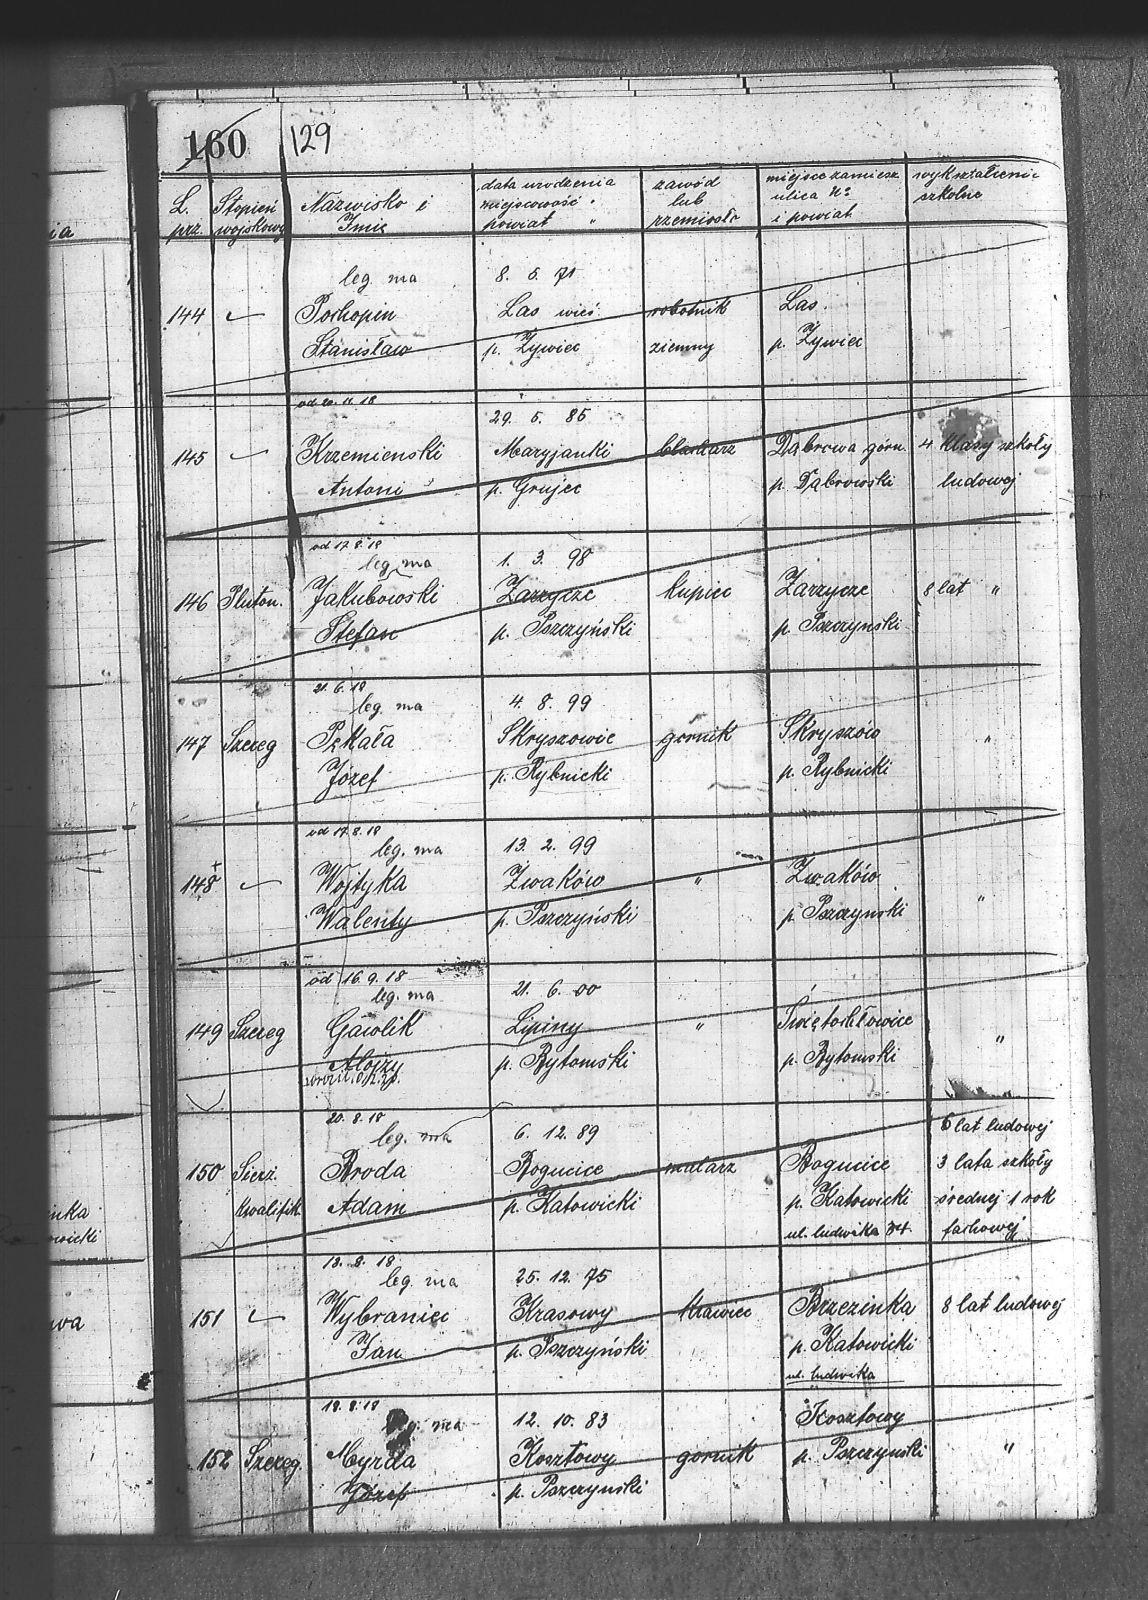 160 129
L. prz. Stopień wojskowy Nazwisko i Imię data urodzenia miejscowość " powiat " zawód lub rzemiosło miejsce zamiesz. ulica No i powiat wykształcenie szkolne
leg. ma 8. 5. 71
144 Pochopin Las wieś robotnik Las.
Stanisław p. Żywiec ziemny p. Żywiec
od 20. 11. 18 29. 5. 85
145 Krzemienski Maryjanki blacharz Dąbrowa górn. 4 klasy szkoły
Antoni p. Grujec p. Dąbrowski ludowej
od 17. 8. 18
leg. ma 1. 3. 98
146 Pluton. Jakubowski Zarzycze kupiec Zarzycze 8 lat "
Stefan p. Pszczyński p. Pszczynski
21. 6. 18
leg. ma 4. 8. 99
147 Szereg Pękała Skryszowie gornik Skryszów "
Józef p. Rybnicki p. Rybnicki
od 17. 8. 18
leg. ma 13. 2. 99
148 Wojtyka Żwaków " Żwaków "
Walenty p. Pszczyński p. Pszczynski
od 16. 9. 18
leg. ma 21. 6. 00
149 Szereg Gawlik Lipiny " Świętochłowice "
Alojzy p. Bytomski p. Bytomski
20. 8. 18 6 lat ludowej
leg. ma 6. 12. 89
150 Sierż. Broda Bogucice malarz Bogucice 3 lata szkoły
kwalifik. Adam p. Katowicki p. Katowicki średniej 1 rok
ul. ludwika fachowej
18. 8. 18
leg. ma 25. 12. 75
151 Wybraniec Krasowy krawiec Brzezinka 8 lat ludowej
Jan p. Pszczyński p. Katowicki
ul. ludwika
18. 8. 18
leg. ma 12. 10. 83 Kosztowy
152 Szereg. Myrda Kosztowy gornik p. Pszczynski "
Józef p. Pszczynski